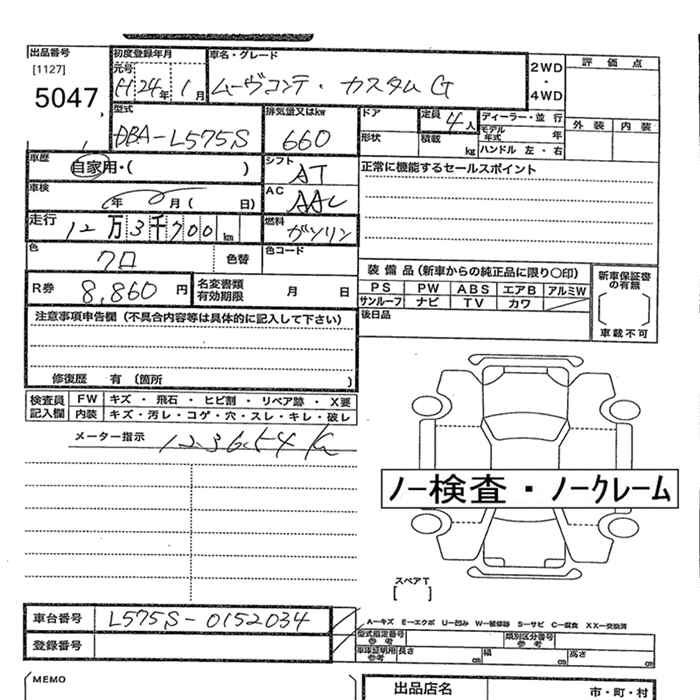 出品番号
[1127]
5047
初度登録年月
元号
H24年 1月
車名・グレード
ムーヴコンテ・カスタムG
2WD
・
4WD
評価点
外装 内装
型式
DBA-L575S
排気量又はkw
660
ドア
形状
定員
4人
積載
kg
ディーラー・並行
モデル年式
ハンドル 左・右
車歴
自家用・( )
シフト
AT
正常に機能するセールスポイント
車検
年 月( 日)
AC
AAC
走行
12万3千700km
燃料
ガソリン
色
クロ
色替
色コード
R券
8,860円
名変書類
有効期限
月 日
装備品(新車からの純正品に限り〇印)
PS PW ABS エアB アルミW
サンルーフ ナビ TV カワ
後日品
新車保証書
の有無
車載不可
注意事項申告欄(不具合内容等は具体的に記入して下さい)
修復歴 有(箇所 )
検査員
記入欄
FW キズ・飛石・ヒビ割・リペア跡・X要
内装 キズ・汚レ・コゲ・穴・スレ・キレ・破レ
メーター指示
123654K
ノー検査・ノークレーム
スペアT
[ ]
車台番号
L575S-0152034
登録番号
A－キズ E－エクボ U－凹み W－補修跡 S－サビ C－腐食 XX－交換済
型式指定番号
参考
類別区分番号
参考
車庫証明用
参考
長さ cm
幅 cm
高さ cm
MEMO
出品店名
市・町・村